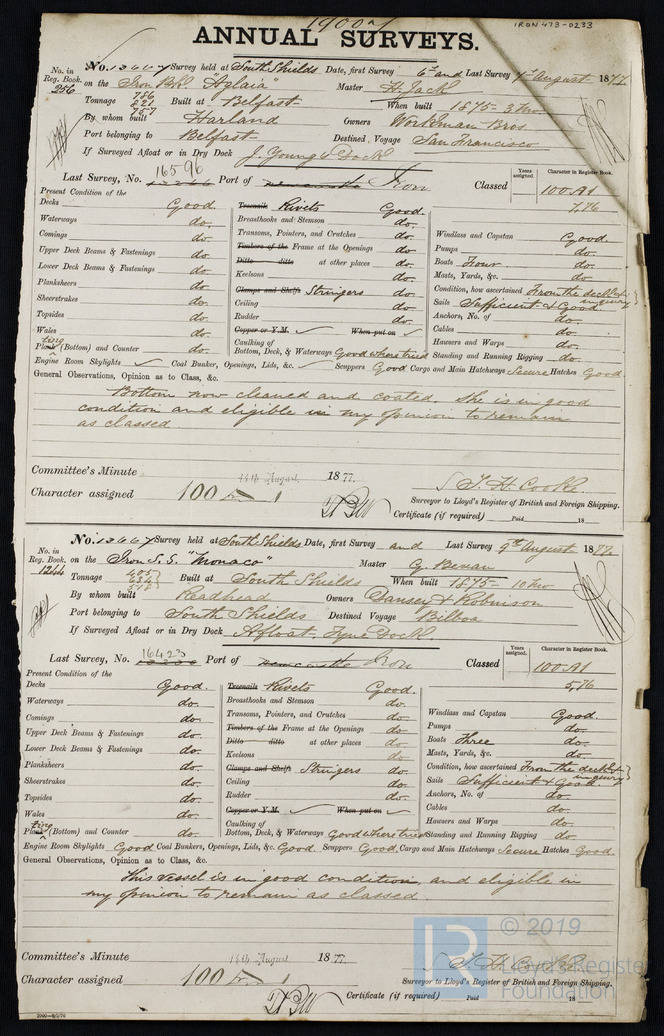 1900
IRON 473-0233
ANNUAL SURVEYS.
No. 12667 Survey held at South Shields Date, first Survey 6th and Last Survey 7th August 1877
No. in Reg. Book.
256
on the Iron Bk. "Aglaia" Master H. Jack
Tonnage 786 821 757 Built at Belfast When built 1875 - 3 mo
By whom built Harland Owners Workman Bros
Port belonging to Belfast Destined Voyage San Francisco
If Surveyed Afloat or in Dry Dock J. Young's Dock
Last Survey, No. 16596 Port of Newcastle Iron Classed Years assigned. Character in Register Book. 100 A1
7,76
Present Condition of the
Decks Good. Treenails Rivets Good.
Waterways do. Breasthooks and Stemson do. Windlass and Capstan Good.
Comings do. Transoms, Pointers, and Crutches do. Pumps do.
Upper Deck Beams & Fastenings do. Timbers of the Frame at the Openings do. Boats Four do.
Lower Deck Beams & Fastenings do. Ditto ditto at other places do. Masts, Yards, &c. do.
Planksheers do. Keelsons do. Condition, how ascertained From the deck & inquiry
Sheerstrakes do. Clamps and Shelfs Stringers do. Sails Sufficient & Good.
Topsides do. Ceiling do. Anchors, No. of do.
Wales do. Rudder do. Cables do.
Plating (Bottom) and Counter do. Copper or Y.M. When put on Hawsers and Warps do.
Caulking of Bottom, Deck, & Waterways Good where tried Standing and Running Rigging do.
Engine Room Skylights Coal Bunker, Openings, Lids, &c. Scuppers Good Cargo and Main Hatchways Secure Hatches Good.
General Observations, Opinion as to Class, &c.
Bottom now cleaned and coated. She is in good
condition and eligible in my opinion to remain
as classed.
Committee's Minute 14th August 1877.
Character assigned 100 A 1
T. H. Cooke
Surveyor to Lloyd's Register of British and Foreign Shipping.
Certificate (if required) Paid 18
No. 12667 Survey held at South Shields Date, first Survey and Last Survey 9th August 1877.
No. in Reg. Book.
1244
on the Iron S.S. "Monaco" Master G. Bevan
Tonnage Built at South Shields When built 1875 - 10 mo
By whom built Readhead Owners & Robinson
Port belonging to South Shields Destined Voyage Bilboa
If Surveyed Afloat or in Dry Dock Afloat. Tyne Dock
Last Survey, No. 16423 Port of Newcastle Iron Classed Years assigned. Character in Register Book. 100 A1
5,76
Present Condition of the
Decks Good. Treenails Rivets Good.
Waterways do. Breasthooks and Stemson do. Windlass and Capstan Good.
Comings do. Transoms, Pointers, and Crutches do. Pumps do.
Upper Deck Beams & Fastenings do. Timbers of the Frame at the Openings do. Boats Three do.
Lower Deck Beams & Fastenings do. Ditto ditto at other places do. Masts, Yards, &c. do.
Planksheers do. Keelsons do. Condition, how ascertained From the deck & inquiry
Sheerstrakes do. Clamps and Shelfs Stringers do. Sails Sufficient & Good.
Topsides do. Ceiling do. Anchors, No. of do.
Wales do. Rudder do. Cables do.
Plating (Bottom) and Counter do. Copper or Y.M. When put on Hawsers and Warps do.
Caulking of Bottom, Deck, & Waterways Good where tried Standing and Running Rigging do.
Engine Room Skylights Good Coal Bunkers, Openings, Lids, &c. Good. Scuppers Good. Cargo and Main Hatchways Secure Hatches Good.
General Observations, Opinion as to Class, &c.
This vessel is in good condition, and eligible in
my opinion to remain as classed.
Committee's Minute 14th August 1877.
Character assigned 100 A 1
T. H. Cooke
Surveyor to Lloyd's Register of British and Foreign Shipping.
Certificate (if required) Paid 18
LR © 2019
Lloyd's Register
Foundation